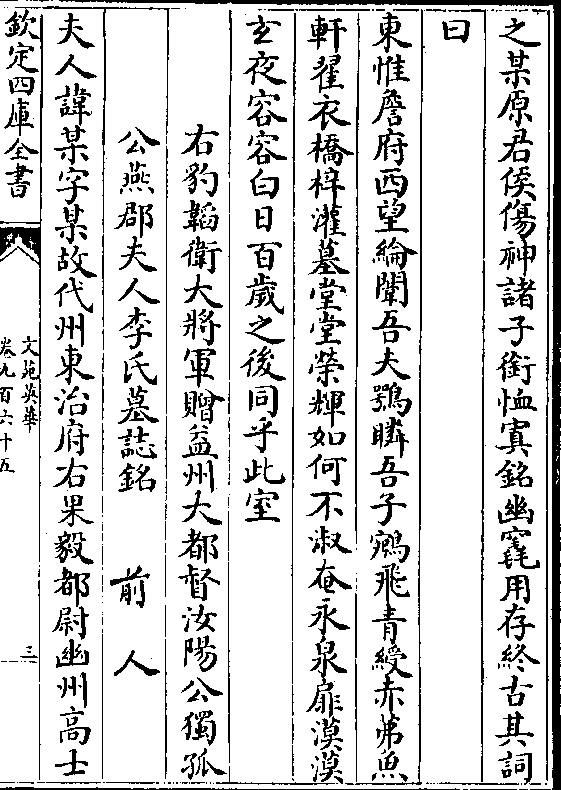 之某原君侯傷神諸子銜恤寘銘幽竁用存終古其詞
曰
東惟詹府西望綸闈吾夫鶚瞵吾子鵷飛青綬赤芾魚
軒翟衣橋梓灌墓堂堂榮輝如何不淑奄永泉扉漠漠
玄夜容容白日百歲之後同乎此室
右豹韜衛大將軍贈益州大都督汝陽公獨孤
公燕郡夫人李氏墓誌銘 前人
夫人諱某字某故代州東治府右果毅都尉幽州高士
欽定四庫全書
文苑英華
卷九百六十五
三